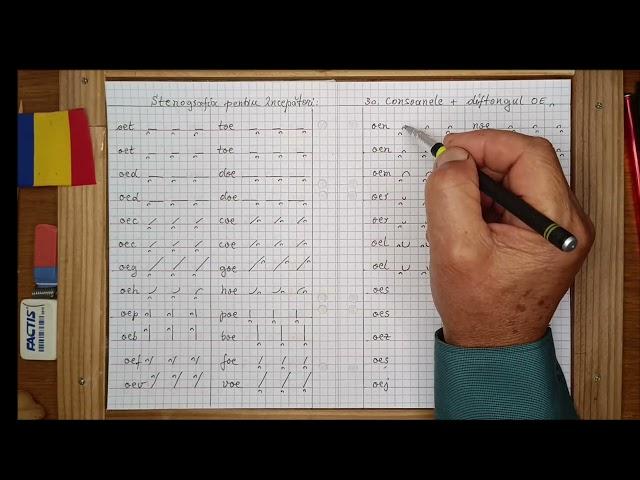 Stenografia pentru începători:
oet toe
oet toe
oed doe
oed doe
oec coe
oec coe
oeg goe
oeh hoe
oep poe
oeb boe
oef foe
oev voe
30. Consoanele + diftongul OE
oen noe
oen
oem
oer
oer
oel
oel
oes
oes
oez
oeș
oej
FACTIS